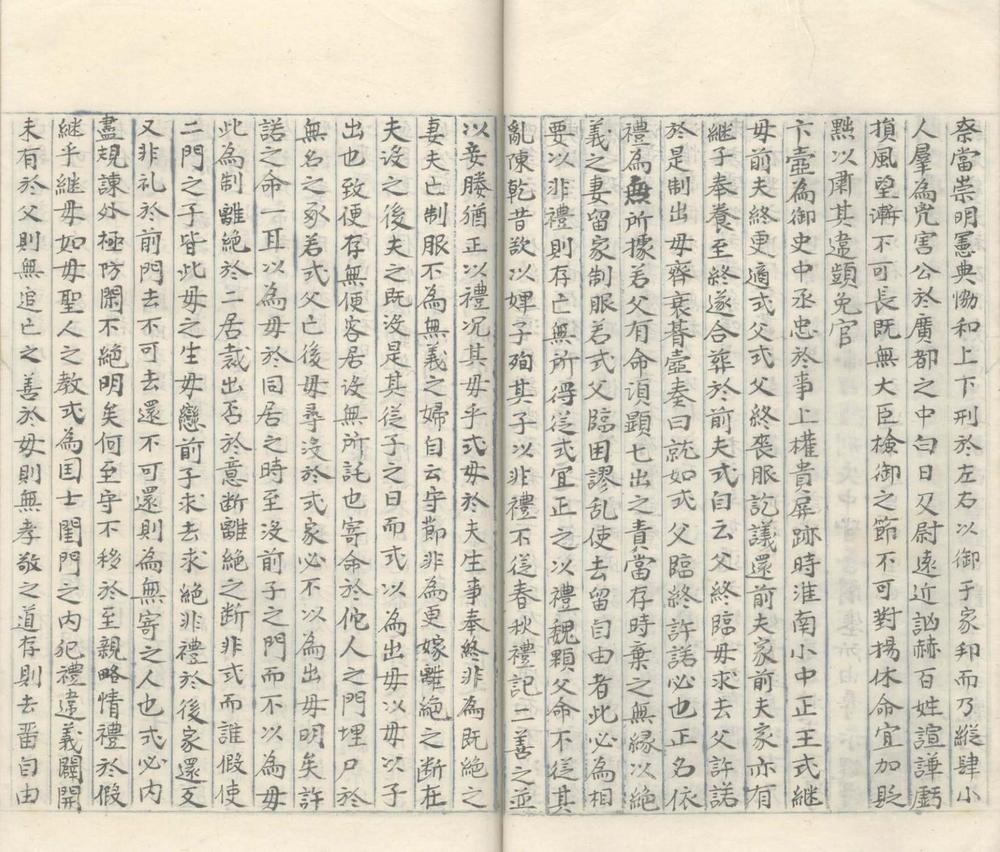 奈當崇明憲典恊和上下刑於左右以御于家卭而乃縱肆小
人羣為兇害公於廣都之中白日刄尉遠近訩赫百姓諠譁虧
損風望漸不可長既無大臣檢御之節不可對揚休命宜加貶
黜以肅其違顗免官
卞壼為御史中丞忠於事上權貴屏跡時淮南小中正王式継
母前夫終更適式父式父終喪服訖議還前夫家前夫家亦有
継子奉養至終遂合葬於前夫式自云父終臨母求去父許諾
於是制出母齊衰朞壼奏曰就如式父臨終許諾必也正名依
禮為無所據若父有命須顯七出之責當存時棄之無縁以絶
義之妻留家制服若式父臨困謬乱使去留自由者此必為相
要以非禮則存亡無所得従式冝正之以禮魏顆父命不従其
亂陳乾昔欲以婢子殉其子以非禮不従春秋禮記二善之並
以妾媵猶正以禮况其母乎式母於夫生事奉終非為既絶之
妻夫亡制服不為無義之婦自云守節非為更嫁離絶之断在
夫沒之後夫之既沒是其従子之日而式以為出母以母以子
出也致使存無便容居沒無所託也寄命於佗人之門埋尸於
無名之冢若式父亡後母尋沒於式家必不以為出母明矣許
諾之命一耳以為母於同居之時至沒前子之門而不以為母
此為制離絶於二居裁出否於意断離絶之断非式而誰假使
二門之子皆此母之生母戀前子求去求絶非禮於後家還反
又非礼於前門去不可去還不可還則為無寄之人也式必内
盡規諫外極防閑不絶明矣何至守不移於至親略情禮於假
継乎継母如母聖人之教式為囯士閨門之内犯禮違義闢開
未有於父則無追亡之善於母則無孝敬之道存則去畱自由